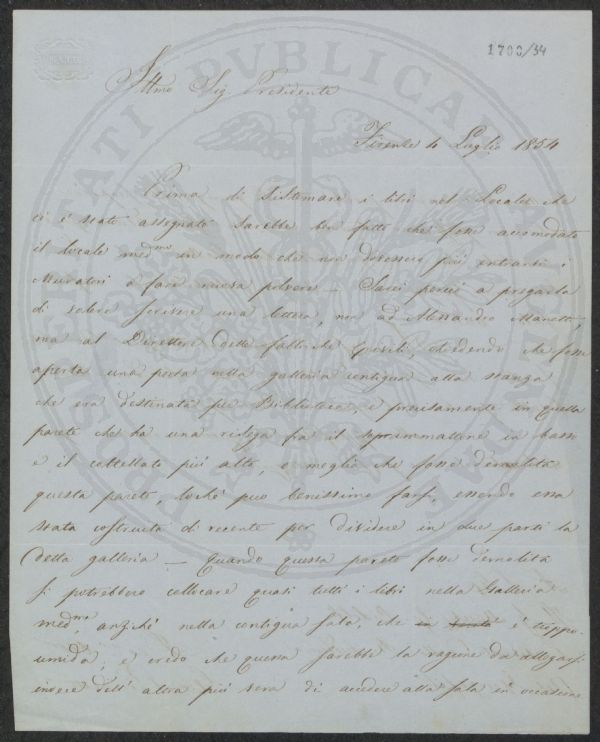 1700/54
Illmo Sig Presidente
Firenze 4 Luglio 1854
Prima di sistemare i libri nel Locale che
ci è stato assegnato sarebbe ben fatto che fosse accomodato
il locale medmo in modo che non dovessero più entrarvi i
Muratori o fare nuova polvere — Sarei perciò a pregarla
di volere scrivere una lettera, non ad Alessandro Manetti,
ma al Direttore delle fabbriche Civili, chiedendo che fosse
aperta una porta nella galleria contigua alla stanza
che era destinata per Biblioteca, e precisamente in quella
parete che ha una risega fra il soprammattone in basso
e il coltellato più alto, o meglio che fosse demolita
questa parete, lochè può benissimo farsi, essendo essa
stata costruita di recente per dividere in due parti la
detta galleria — Quando questa parete fosse demolita
si potrebbero collocare quasi tutti i libri nella Galleria
medma, anziché nella contigua sala, che è troppo
umida, e credo che questa sarebbe la ragione da allegarsi
invece dell'altra più vera di accedere alla sala in occasione
PRESIDENTI PVBLICAE